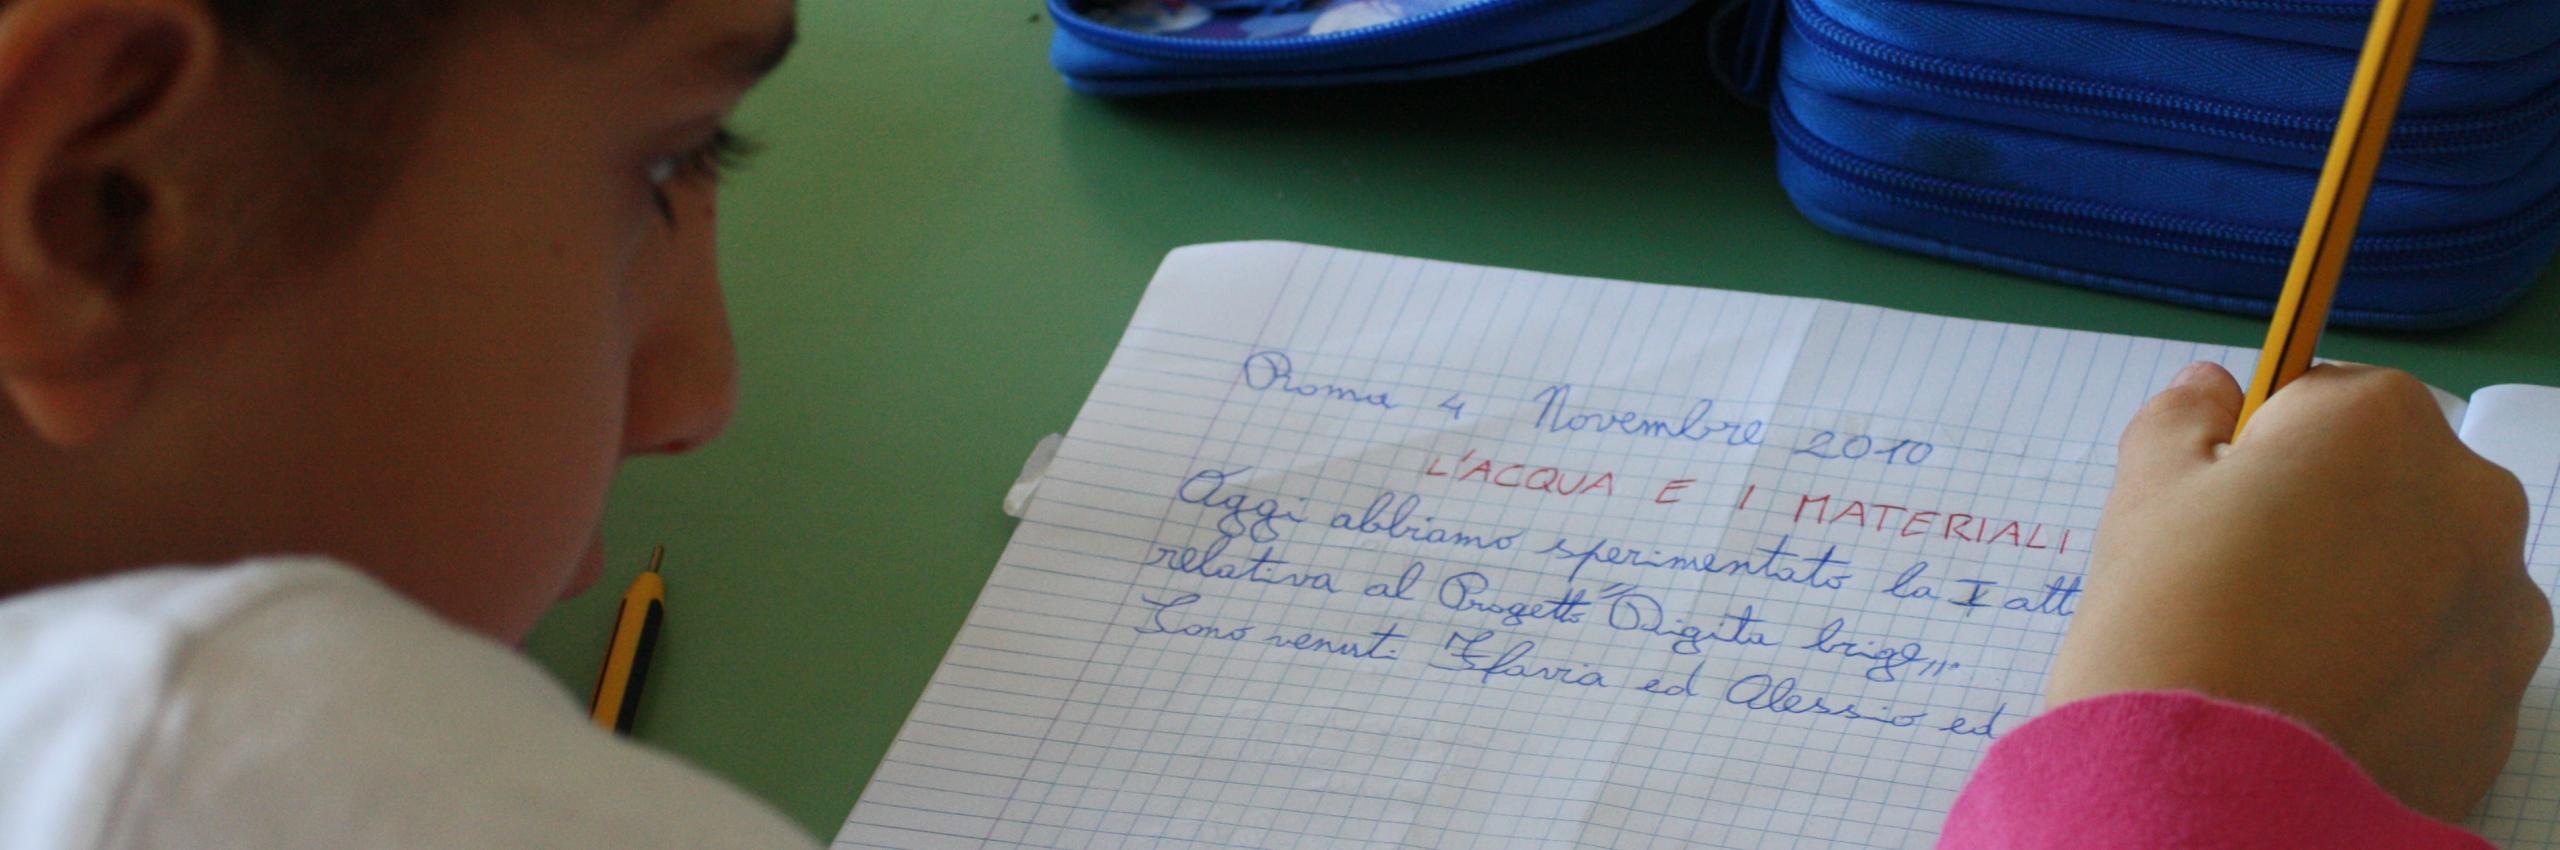 Roma 4 Novembre 2010
L'ACQUA E I MATERIALI
Oggi abbiamo sperimentato la I att
relativa al Progetto "Digita brige"
Sono venuti Flavia ed Alessio ed